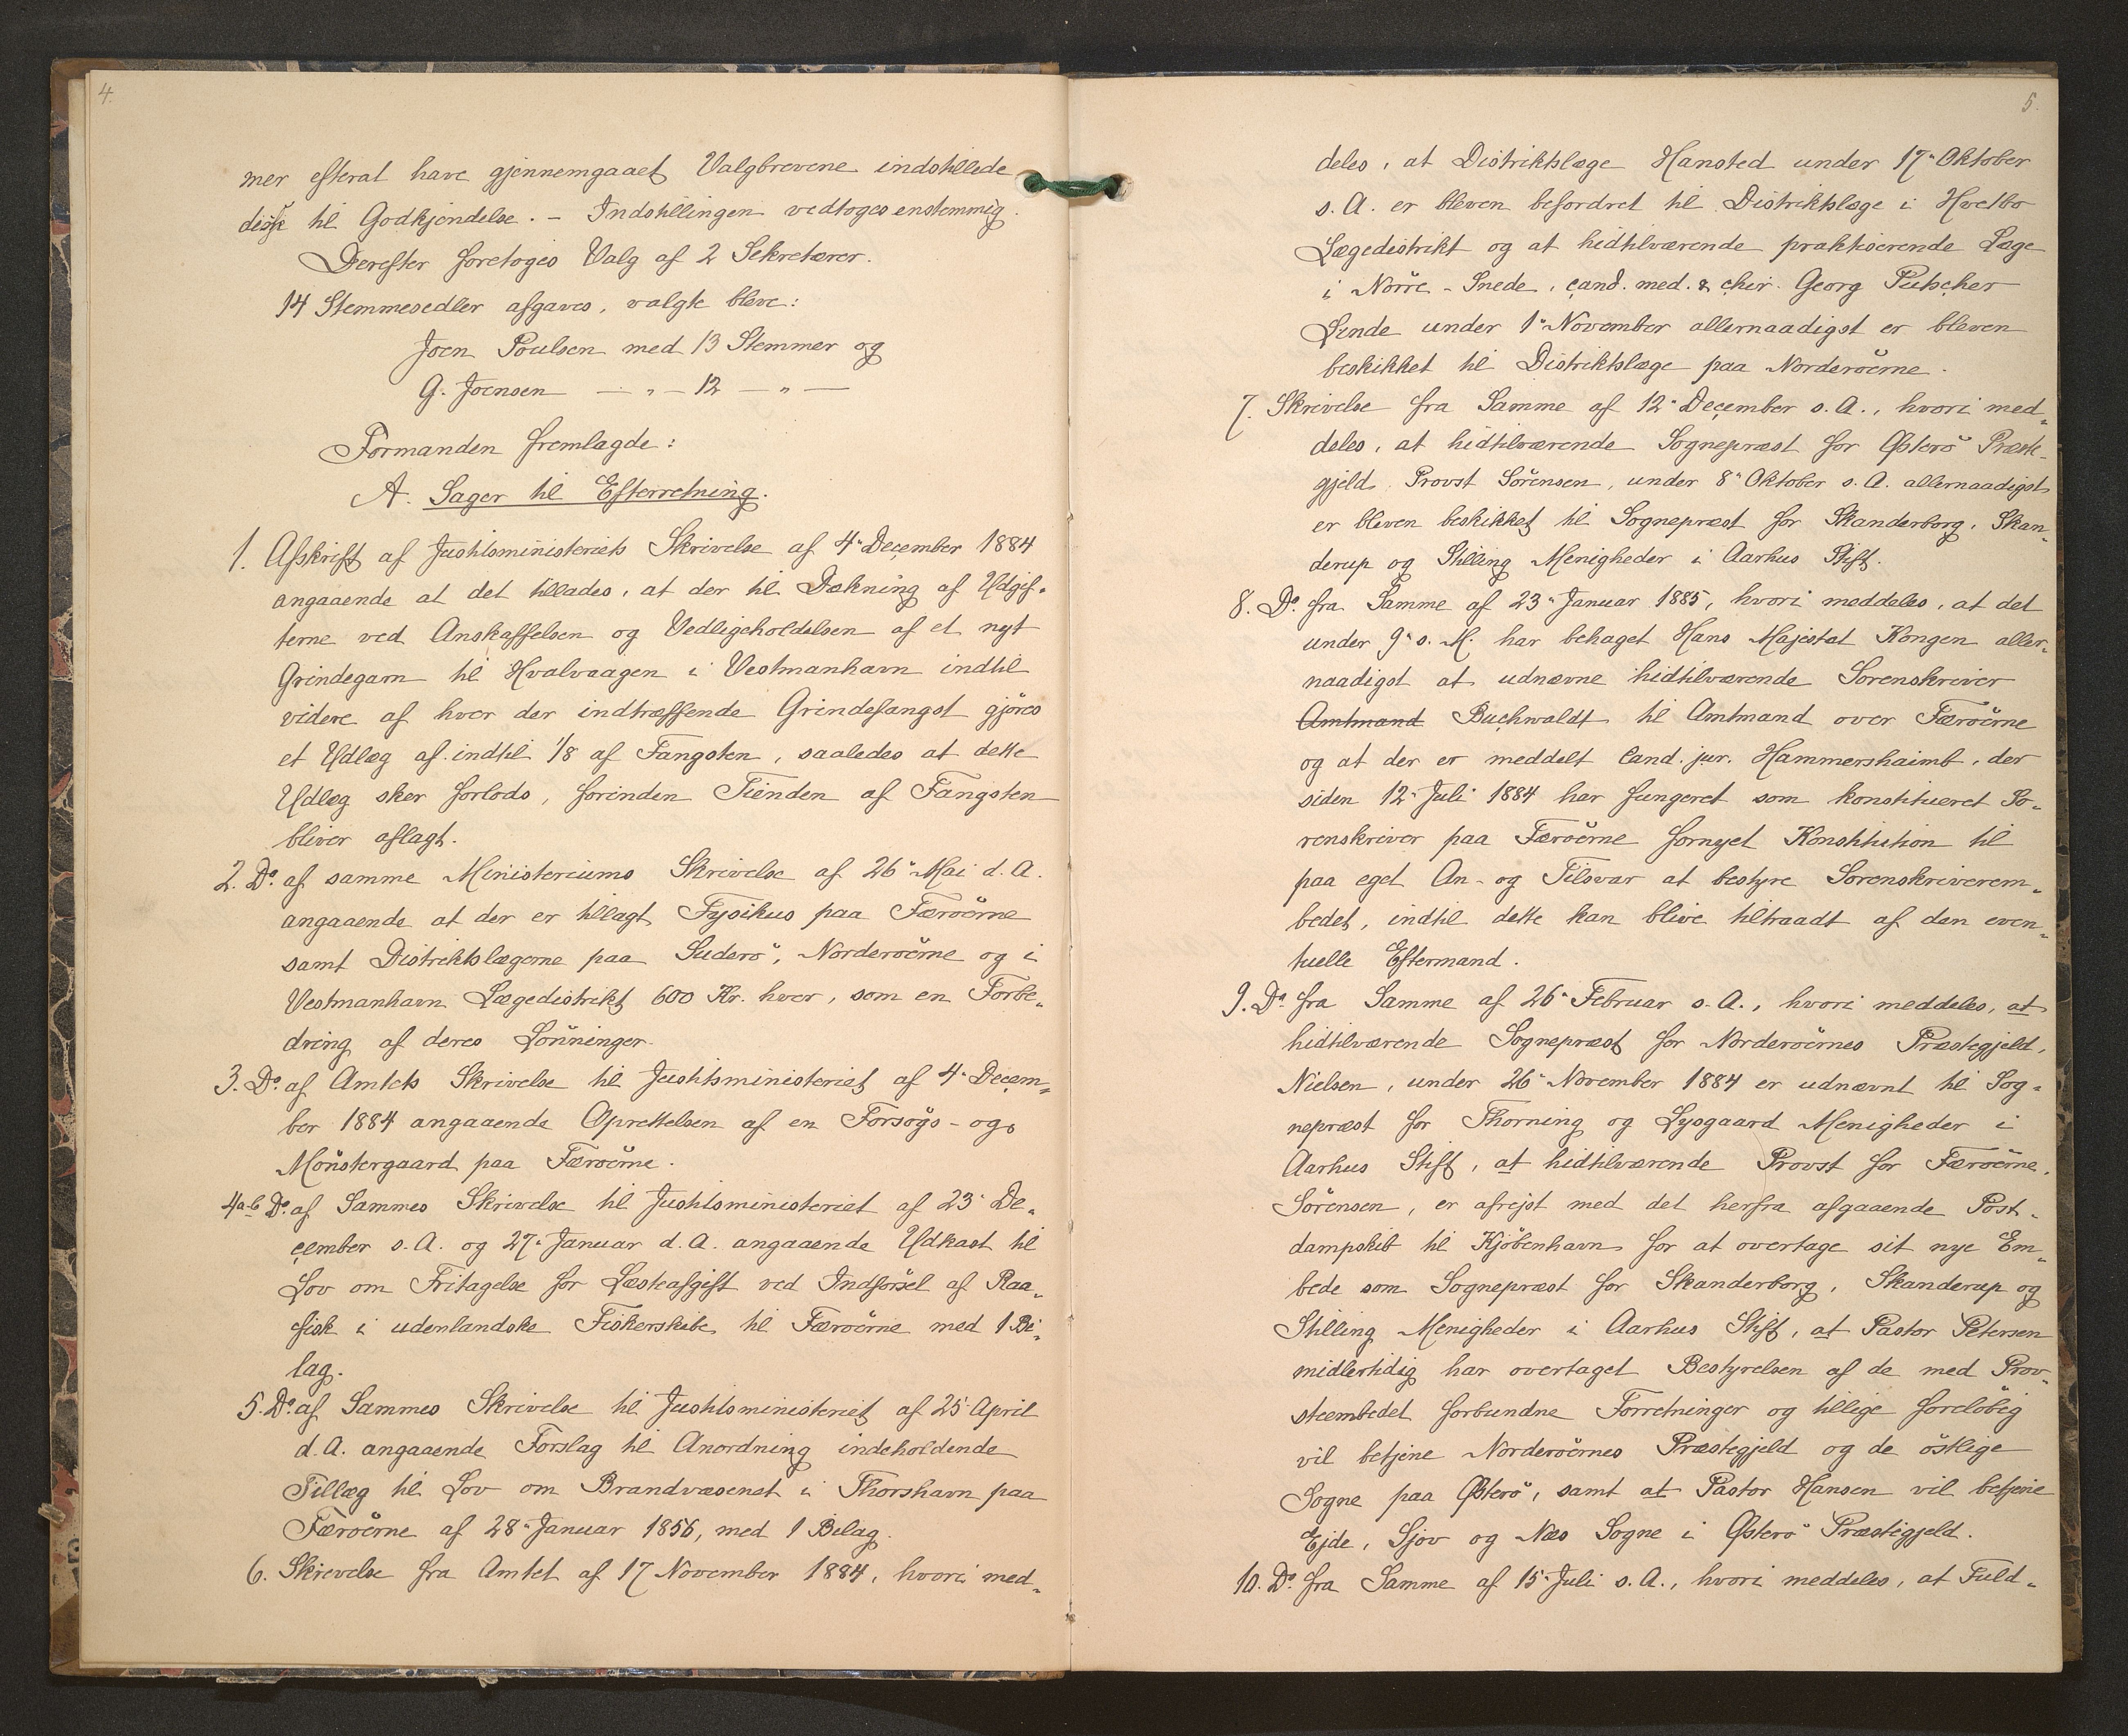 4.
mer efterat have gjennemgaaet Valgbrevene indstillede
disse til Godkjendelse. – Indstillingen vedtoges enstemmig.
Derefter foretoges Valg af 2 Sekretærer.
14 Stemmesedler afgaves, valgte bleve:
Joen Poulsen med 13 Stemmer og
G. Joensen — „ — 12 — „ —
Formanden fremlagde:
A. Sager til Efterretning.
1. Afskrift af Justitsministeriets Skrivelse af 4" December 1884
angaaende at det tillades, at der til Dækning af Udgif-
terne ved Anskaffelsen og Vedligeholdelsen af et nyt
Grindegarn til Hvalvaagen i Vestmanhavn indtil
videre af hver der indtræffende Grindefangst gjöres
et Udlæg af indtil 1/8 af Fangsten, saaledes at dette
Udlæg sker forlods, forinden Tienden af Fangsten
bliver aflagt.
2. Do. af samme Ministeriums Skrivelse af 26" Mai d. A.
angaaende at der er tillagt Fysikus paa Færöerne
samt Distriktslægerne paa Suderö, Norderöerne og i
Vestmanhavn Lægedistrikt 600 Kr. hver, som en Forbe-
dring af deres Lönninger.
3. Do. af Amtets Skrivelse til Justitsministeriet af 4" Decem-
ber 1884 angaaende Oprettelsen af en Forsögs- og
Mönstergaard paa Færöerne.
4a-b Do. af Sammes Skrivelse til Justitsministeriet af 23" De-
cember s. A. og 27" Januar d. A. angaaende Udkast til
Lov om Fritagelse for Læsteafgift ved Indförsel af Raa-
fisk i udenlandske Fiskerskibe til Færöerne med 1 Bi-
lag.
5. Do. af Sammes Skrivelse til Justitsministeriet af 25" April
d. A. angaaende Forslag til Anordning indeholdende
Tillæg til Lov om Brandvæsenet i Thorshavn paa
Færöerne af 28" Januar 1856, med 1 Bilag.
6. Skrivelse fra Amtet af 17 November 1884, hvori med-
5.
deles, at Distriktslæge Hansted under 17" Oktober
s. A. er bleven befordret til Distriktslæge i Hvetbo
Lægedistrikt og at hidtilværende praktiserende Læge
i Nörre-Snede, cand. med. & chir. Georg Putscher
Linde under 1" November allernaadigst er bleven
beskikket til Distriktslæge paa Norderöerne.
7. Skrivelse fra Samme af 12" December s. A., hvori med-
deles, at hidtilværende Sognepræst for Østerö Præste-
gjeld, Provst Sörensen, under 8" Oktober s. A. allernaadigst
er bleven beskikket til Sognepræst for Skanderborg, Skan-
derup og Stilling Menigheder i Aarhus Stift.
8. Do. fra Samme af 23" Januar 1885, hvori meddeles, at det
under 9" s. M. har behaget Hans Majestæt Kongen aller-
naadigst at udnævne hidtilværende Sorenskriver
Amtmand Buchwaldt til Amtmand over Færöerne
og at der er meddelt Cand. jur. Hammershaimb, der
siden 12" Juli 1884 har fungeret som konstitueret So-
renskriver paa Færöerne fornyet Konstitution til
paa eget An- og Tilsvar at bestyre Sorenskriverem-
bedet, indtil dette kan blive tiltraadt af den even-
tuelle Eftermand.
9. Do. fra Samme af 26" Februar s. A., hvori meddeles, at
hidtilværende Sognepræst for Norderöernes Præstegjeld,
Nielsen, under 26" November 1884 er udnævnt til Sog-
nepræst for Thorning og Lysgaard Menigheder i
Aarhus Stift, at hidtilværende Provst for Færöerne,
Sörensen, er afrejst med det herfra afgaaende Post-
dampskib til Kjöbenhavn for at overtage sit nye Em-
bede som Sognepræst for Skanderborg, Skanderup og
Stilling Menigheder i Aarhus Stift, at Pastor Petersen
midlertidig har overtaget Bestyrelsen af de med Prov-
steembedet forbundne Forretninger og tillige forelöbig
vil betjene Norderöernes Præstegjeld og de östlige
Sogne paa Østerö, samt at Pastor Hansen vil betjene
Ejde, Sjov og Næs Sogne i Østerö Præstegjeld.
10. Do. fra Samme af 15" Juli s. A., hvori meddeles, at Fuld-